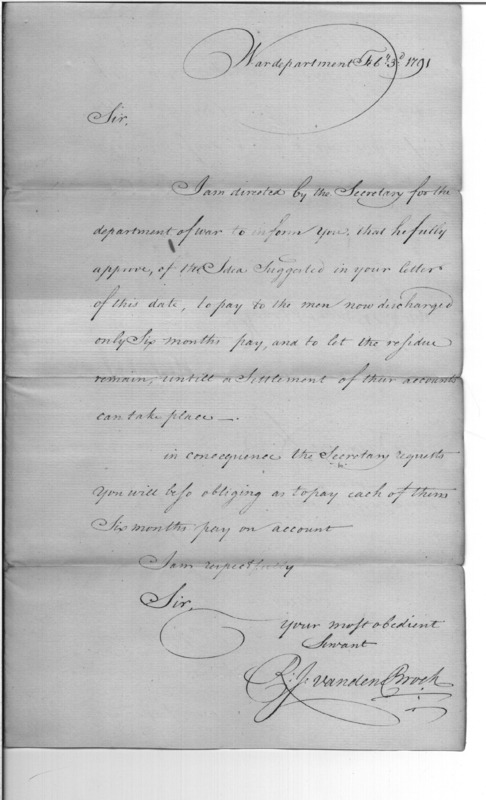 War department Feb.y 3d 1791
Sir.
I am directed by the Secretary for the
department of war to inform You, that he fully
approve, of the Idea Suggested in your letter
of this date, to pay to the men now discharged
only Six months pay, and to let the residue
remain, untill a Settlement of their accounts
can take place —.
in concequence the Secretary requests
You will be so obliging as to pay each of them
Six months pay on account
I am respectfully
Sir,
Your most obedient
Servant
R: J: vanden Broek